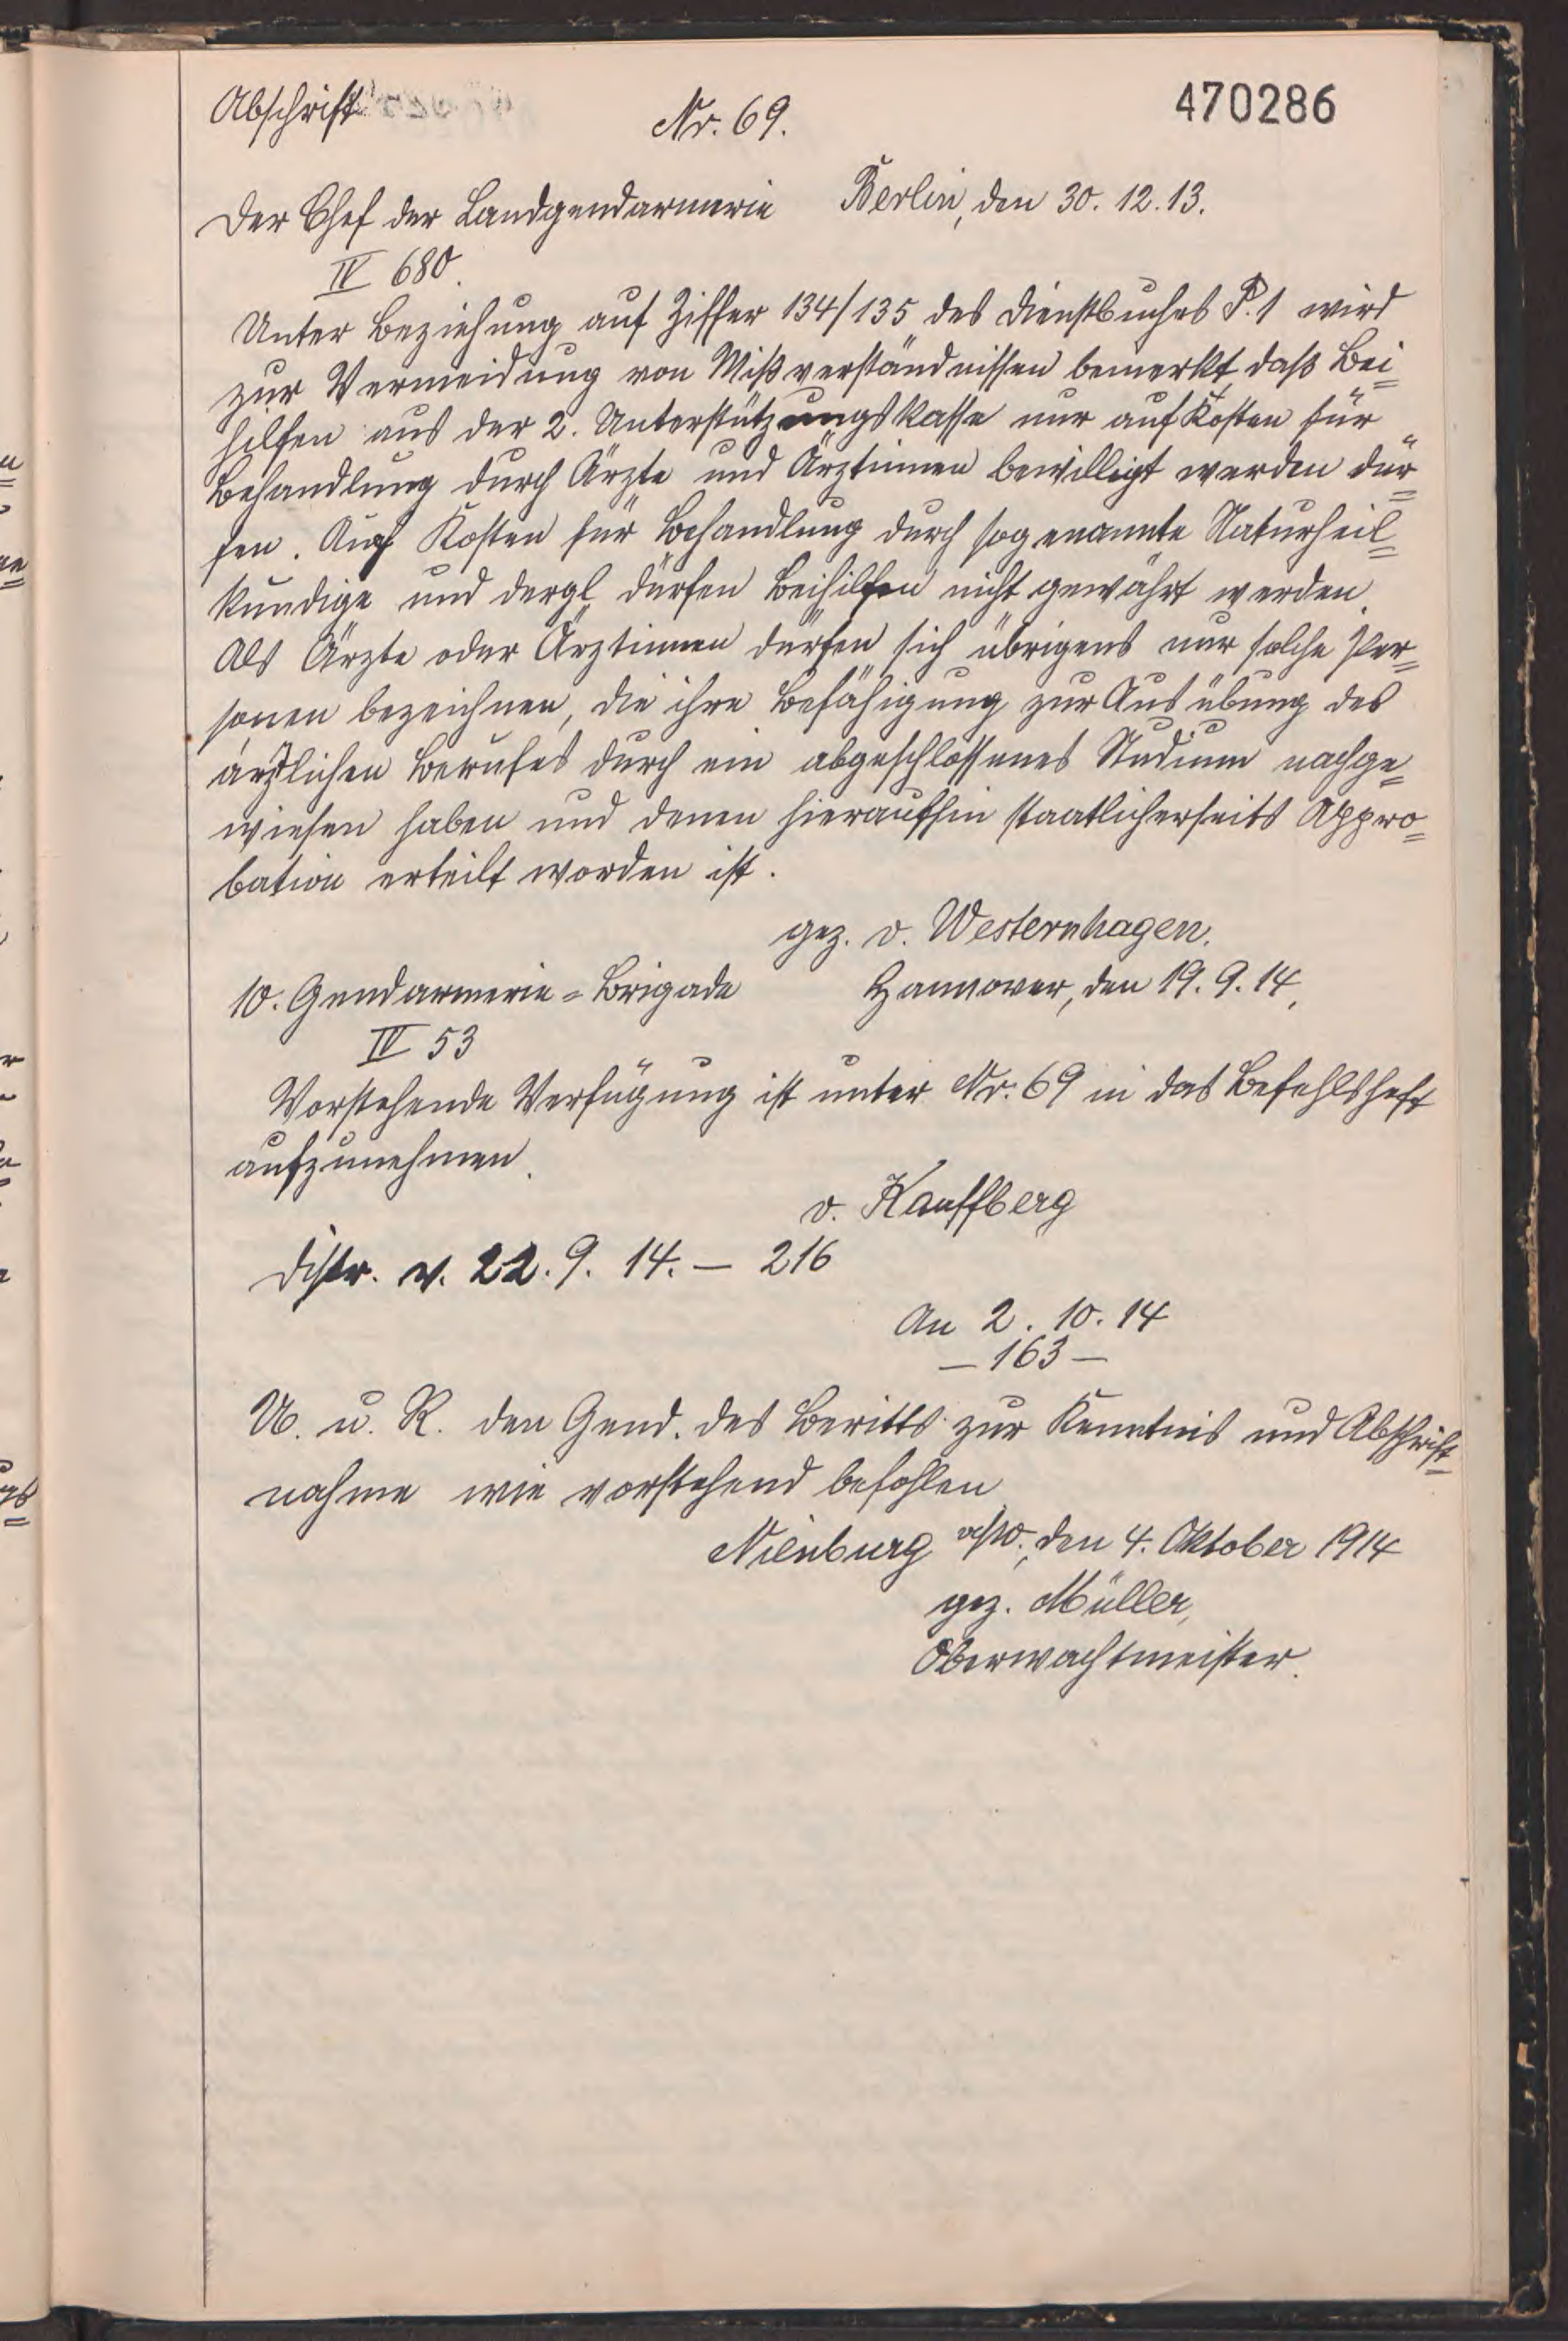 Abschrift
Nr. 69.
470286
Der Chef der Landgendarmerie Berlin, den 30. 12. 13.
IV 680.
Unter Beziehung auf Ziffer 134/135 des Dienstbuches P. 1 wird
zur Vermeidung von Mißverständnissen bemerkt, daß Bei=
hilfen aus der 2. Unterstützungskasse nur auf Kosten für
Behandlung durch Ärzte und Ärztinnen bewilligt werden dür=
fen. Auf Kosten für Behandlung durch sogenannte Naturheil=
kundige und dergl. dürfen Beihilfen nicht gewährt werden.
Als Ärzte oder Ärztinnen dürfen sich übrigens nur solche Per=
sonen bezeichnen, die ihre Befähigung zur Ausübung des
ärztlichen Berufes durch ein abgeschlossenes Studium nachge=
wiesen haben und denen hieraufhin staatlicherseits Appro=
bation erteilt worden ist.
gez. v. Westernhagen.
10. Gendarmerie=Brigade Hannover, den 19. 9. 14.
IV 53
Vorstehende Verfügung ist unter Nr. 69 in das Befehlsheft
aufzunehmen.
v. Kauffberg
Distr. v. 22. 9. 14. — 216
An 2. 10. 14
— 163 —
U. u. R. den Gend. des Beritts zur Kenntnis und Abschrift=
nahme wie vorstehend befohlen
Nienburg a/W., den 4. Oktober 1914
gez. Müller,
Oberwachtmeister.